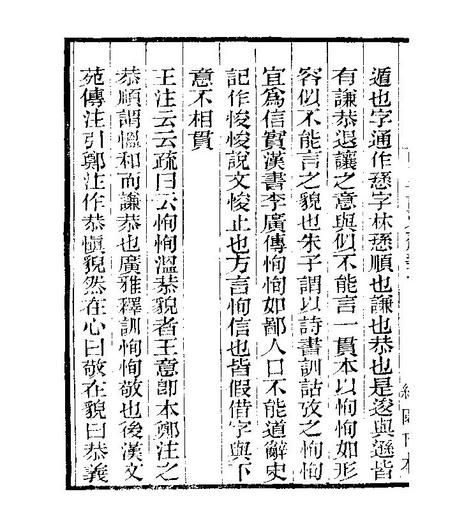 遁也字通作愻字林愻順也謙也恭也是遂與遜皆
有謙恭退讓之意與似不能言一貫本以恂恂如形
容似不能言之貌也朱子謂以詩書訓詁攷之恂恂
宜爲信實漢書李廣傳恂恂如鄙人口不能道辭史
記作悛悛說文悛止也方言恂信也皆假借字與下
意不相貫
王注云云疏曰云恂恂溫恭貌者王意卽本鄭注之
恭順謂溫和而謙恭也廣雅釋訓恂恂敬也後漢文
苑傳注引鄭注作恭愼貌然在心曰敬在貌曰恭義